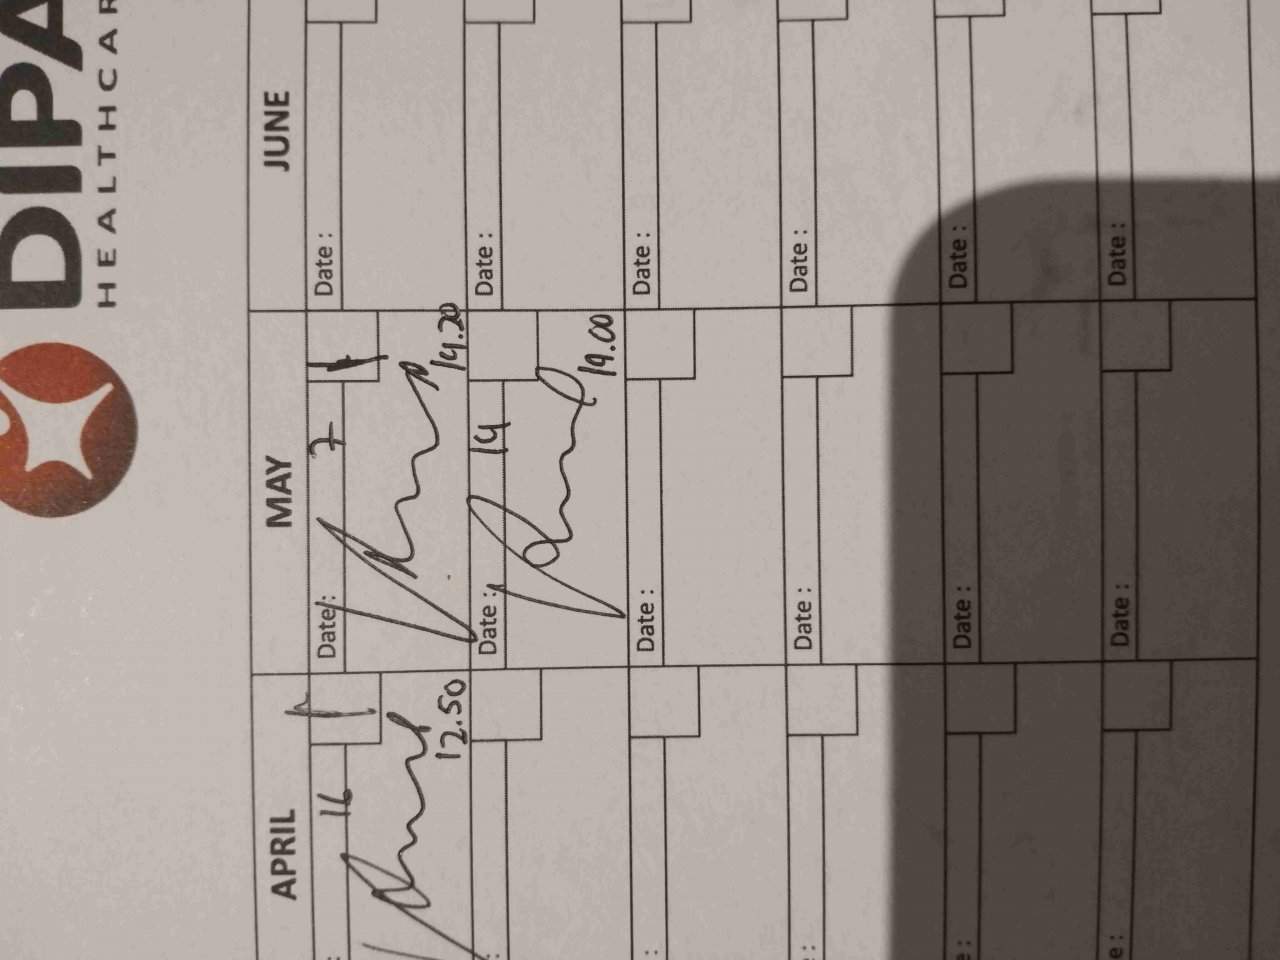 DIPA
HEALTHCAR
APRIL MAY JUNE
: 16 Date: 7 Date :
12.50 14.20
: Date: 14 Date :
19.00
: Date : Date :
: Date : Date :
e: Date : Date :
e: Date : Date :